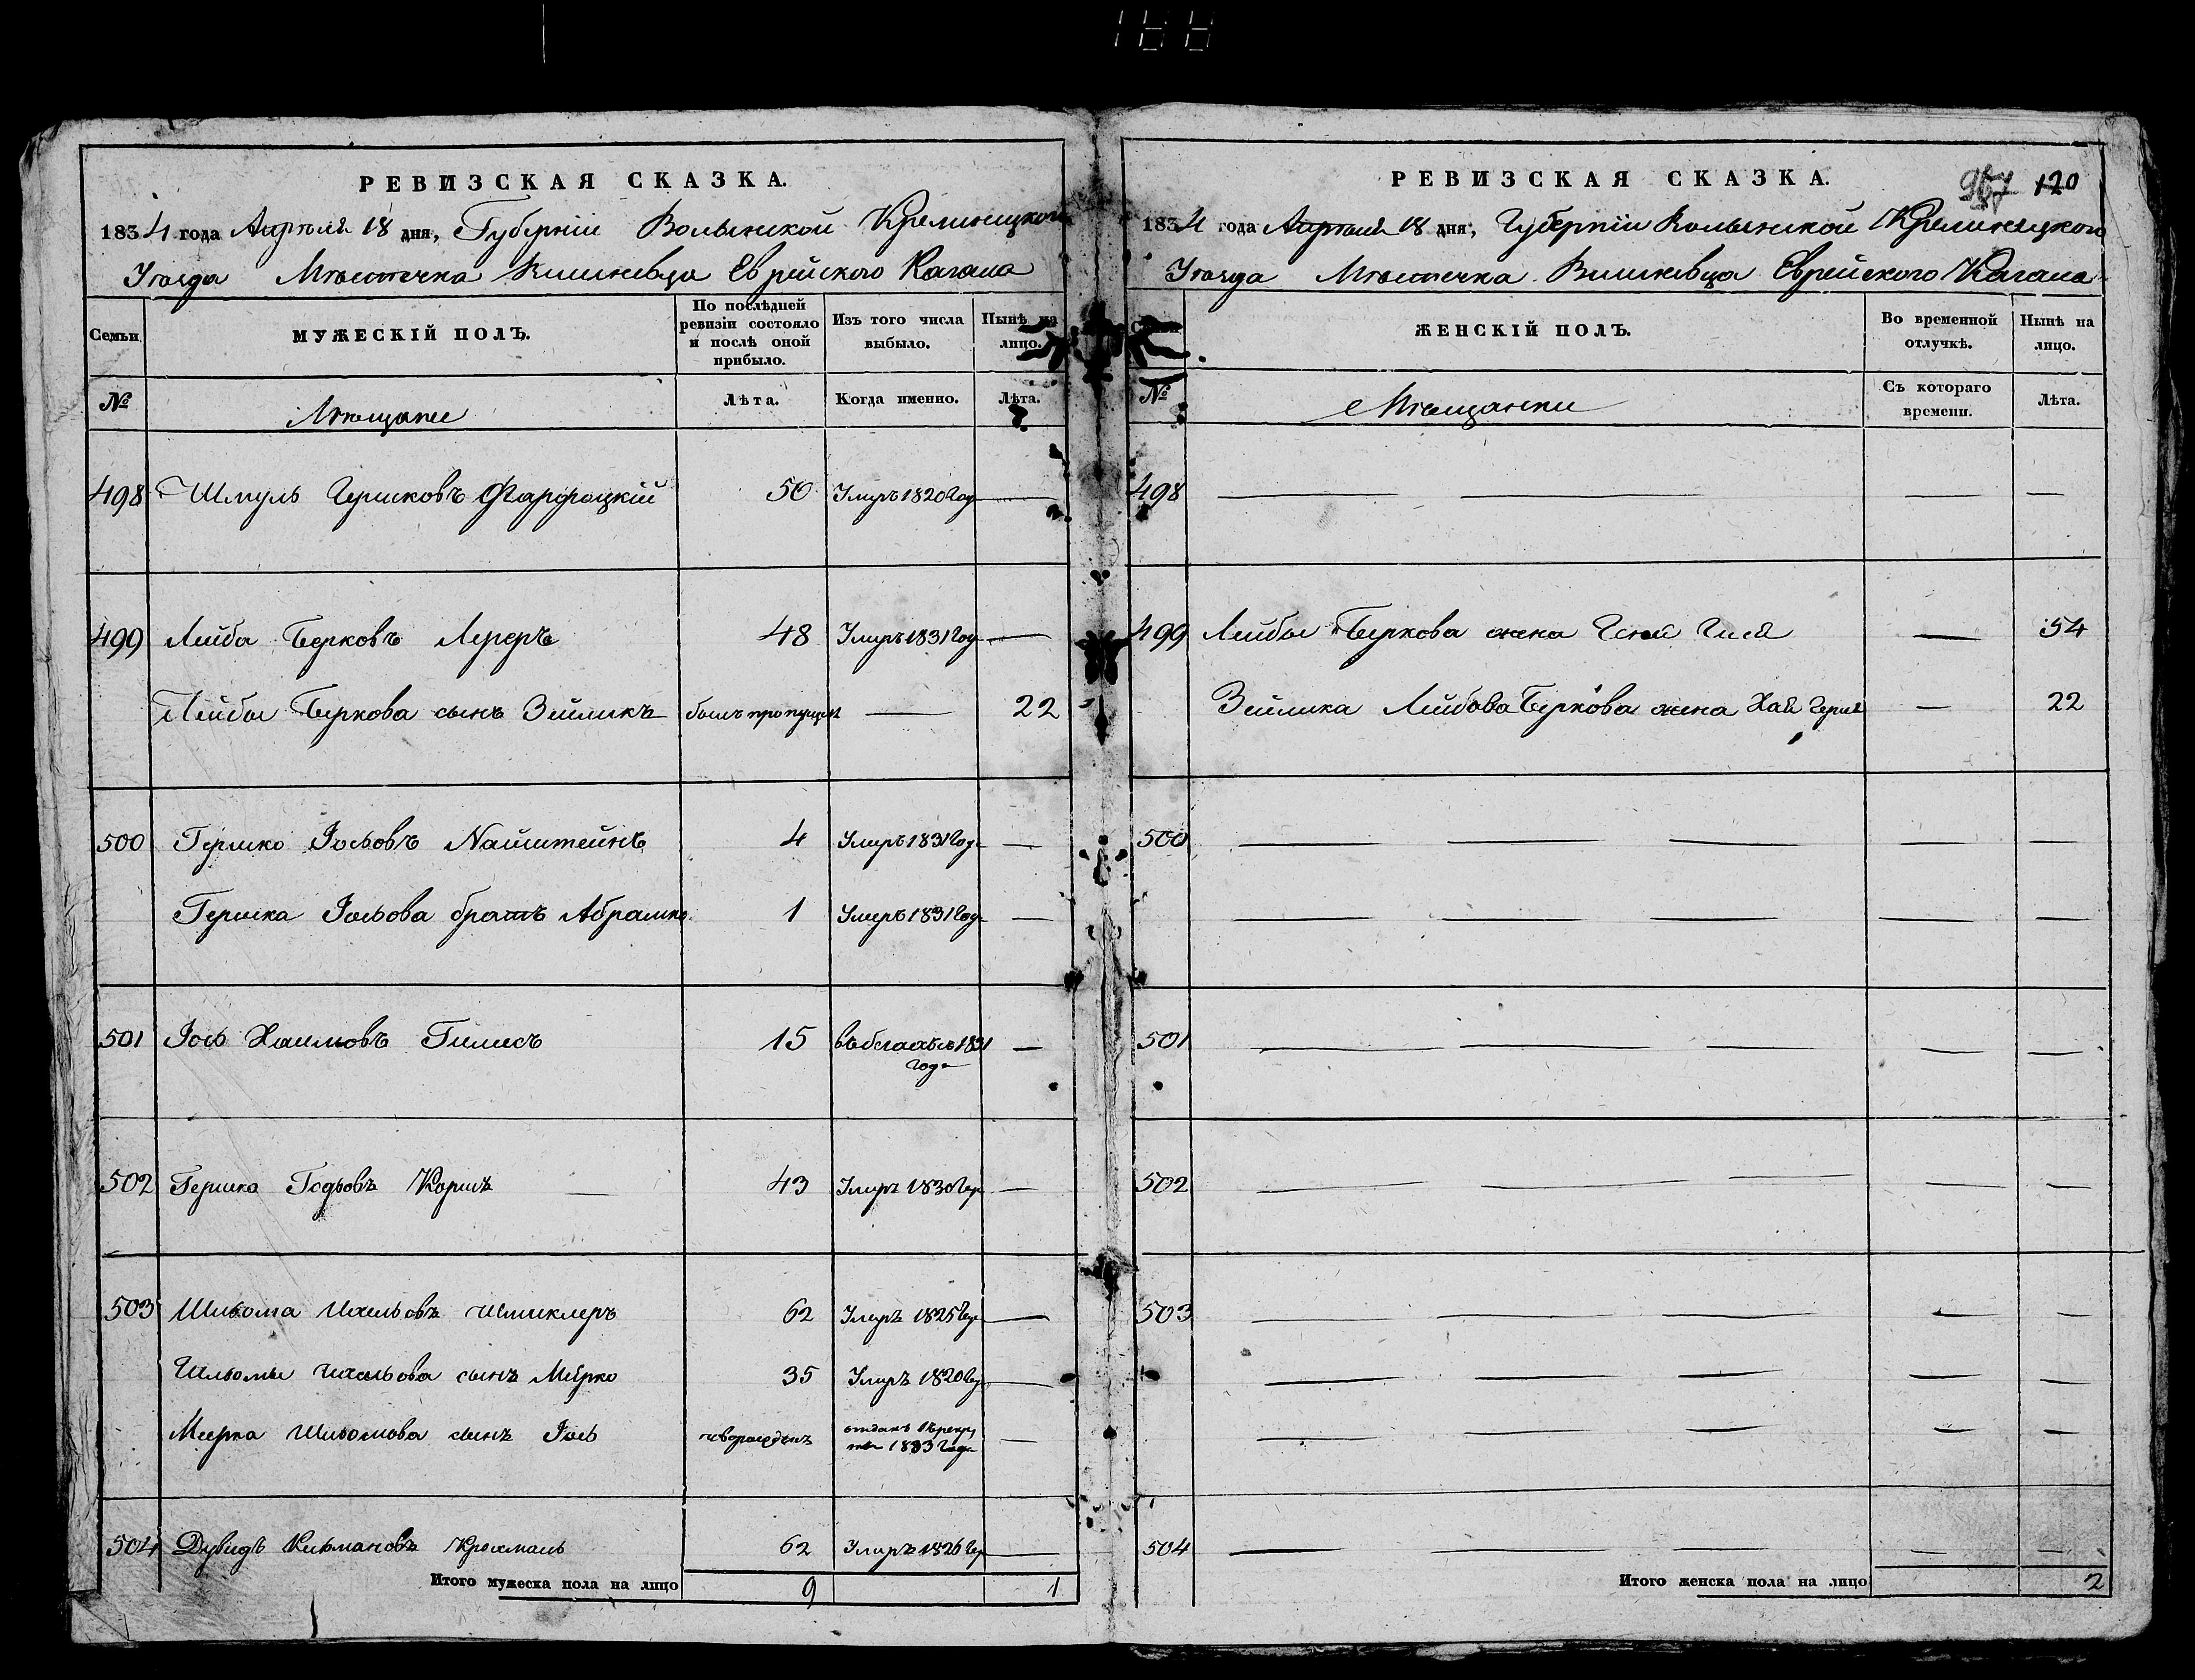 188
РЕВИЗСКАЯ СКАЗКА.
1834 года Апреля 18 дня, Губерніи Волынской Кременецкого
Уѣзда Мѣстечка Вишневца Еврейского Кагала
Семьи
МУЖЕСКІЙ ПОЛЪ.
По послѣдней ревизіи состояло и послѣ оной прибыло.
Изъ того числа выбыло.
Нынѣ на лицо.
№
Мѣщане
Лѣта.
Когда именно.
Лѣта.
498 Шмуль Гершковъ 50 Умеръ 1820 Год
499 Лейба Берковъ Лереръ 48 Умеръ 1831 Год
Лейбы Беркова сынъ Зейликъ былъ пропущен 22
500 Гершко Іосьовъ Найштейнъ 4 Умеръ 1831 Год
Гершка Іосьова братъ Абрамко 1 Умеръ 1831 Год
501 Іось Хаимовъ 15 въ бегахъ съ 1831 года
502 Гершко 43 Умеръ 1830 Год
503 Шльома Ихельовъ Шмиклеръ 62 Умеръ 1825 Год
Шльомы Ихельова сынъ Меерко 35 Умеръ 1820 Год
Меерка Шльомова сынъ Іось новорожденъ отданъ въ рекруты 1833 Года
504 Дувидъ 62 Умеръ 1826 Год
Итого мужеска пола на лицо 9 1
РЕВИЗСКАЯ СКАЗКА.
967 120
1834 года Апреля 18 дня, Губерніи Волынской Кременецкого
Уѣзда Мѣстечка Вишневца Еврейского Кагала
ЖЕНСКІЙ ПОЛЪ.
Во временной отлучкѣ.
Нынѣ на лицо.
№
Мѣщанки
Съ котораго времени.
Лѣта.
498
499 Лейбы Беркова жена 54
Зейлика Лейбова Беркова жена Хая 22
500
501
502
503
504
Итого женска пола на лицо 2